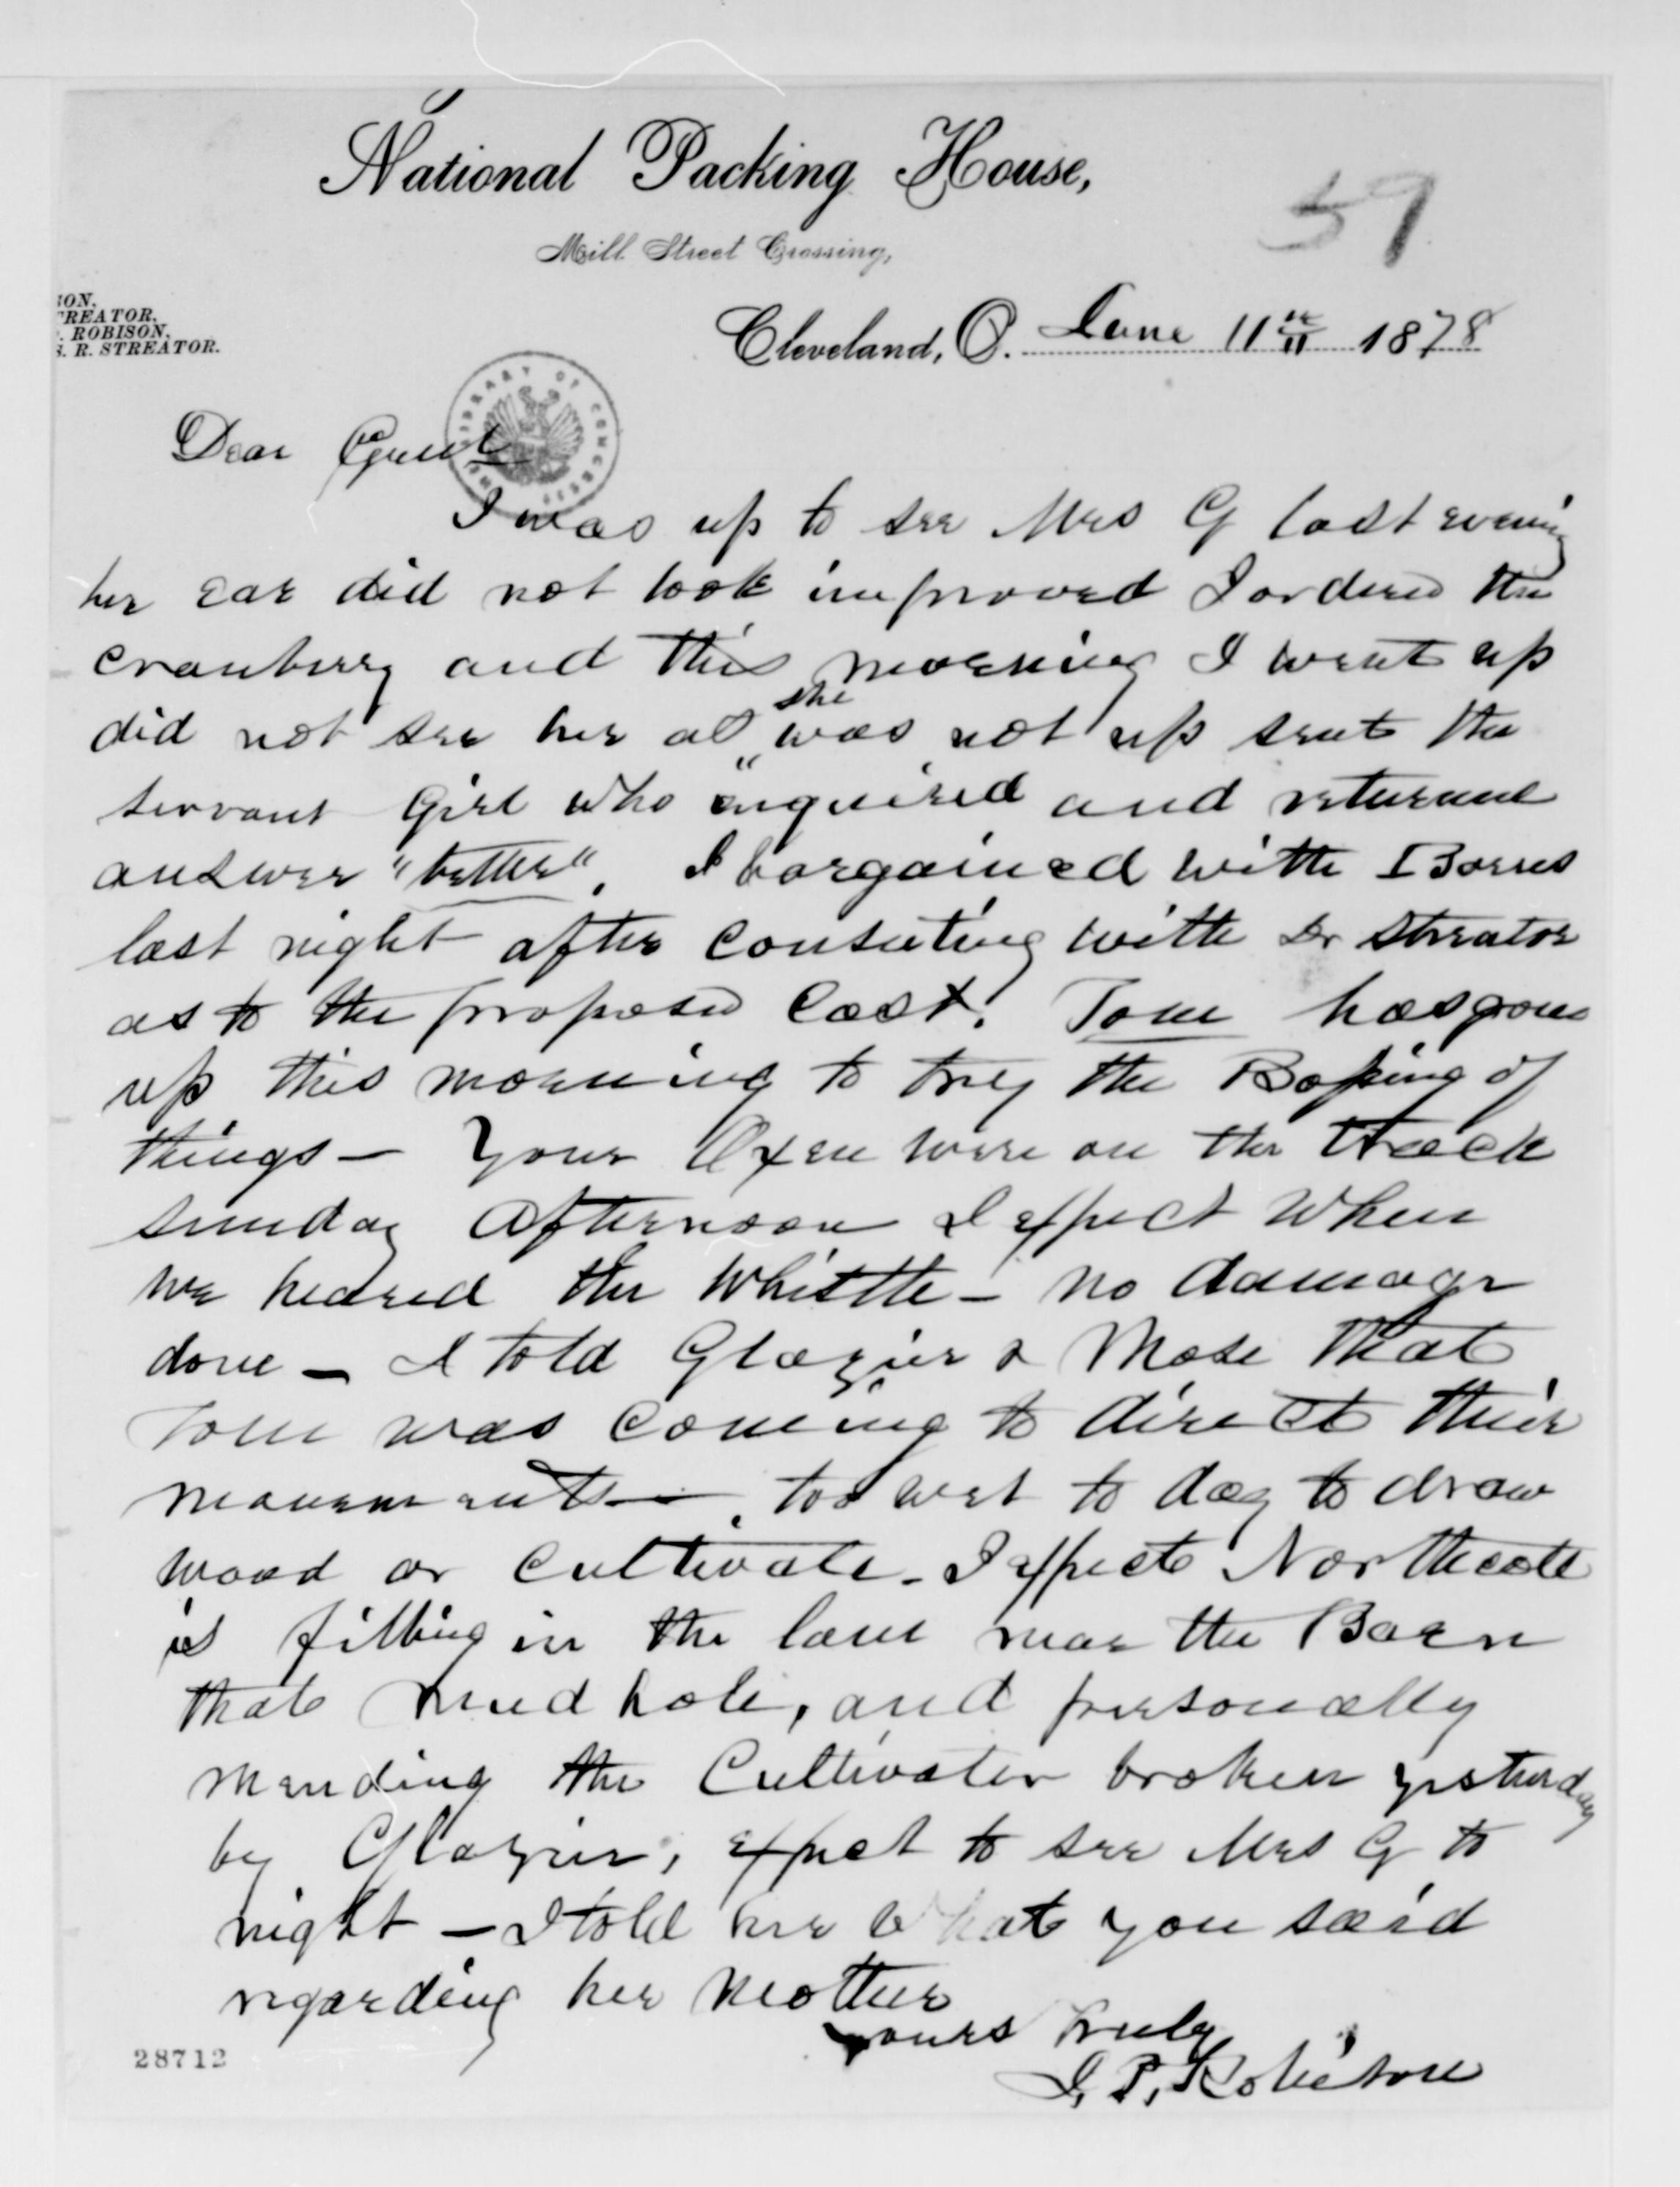 National Packing House,
59
Mill Street Crossing,
Cleveland, O. June 11th 1878
SON,
TREATOR,
. ROBISON,
S. R. STREATOR.
LIBRARY OF CONGRESS
Dear Genl
I was up to see Mrs G last evening
her ear did not look improved I ordered the
cranberry and this morning I went up
did not see her as she was not up sent the
servant Girl who enquired and returned
answer "better". I bargained with Barns
last night after consulting with Dr Streator
as to the proposed cost. Tom has gone
up this morning to try the Bossing of
things - Your Oxen were on the track
sunday afternoon I expect when
we heared the whistle - no damage
done - I told Glazier & Mose that
Tom was coming to direct their
movements - too wet to day to draw
wood or cultivate - I expect Northcott
is filling in the lane near the Barn
that mud hole, and personally
mending the Cultivator broken yesterday
by Glazier, expect to see Mrs G to
night - I told her what you said
regarding her Mother
yours truly
J. P. Robison
28712